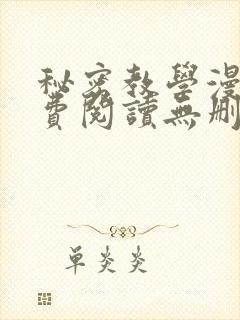 秘密教學漫
費閱讀無刪
單炎炎